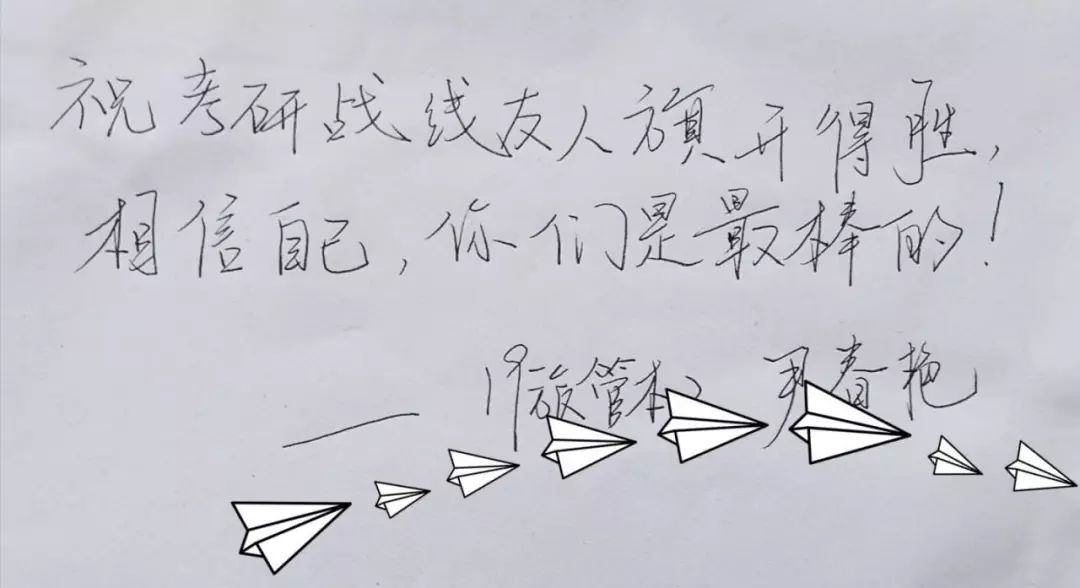 祝考研战线友人旗开得胜,
相信自己,你们是最棒的!
—— 19旅管本2 春艳